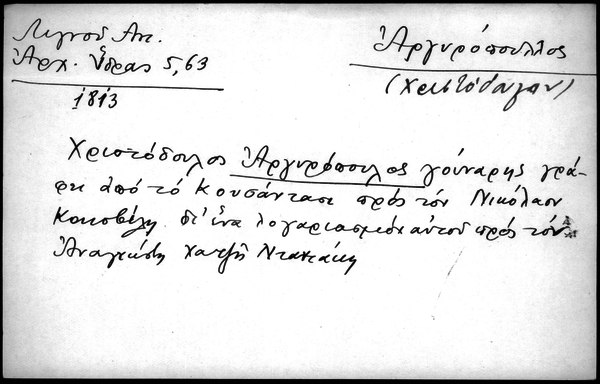 Λιγνοῦ Ἀν.
Ἀρχ. Ὕδρας 5, 63
1813
Ἀργυρόπουλος
(Χριστόδουλος)
Χριστόδουλος Ἀργυρόπουλος γούναρης γρά-
φει ἀπό τό Κουσάντασι πρός τόν Νικόλαον
Κοκοβίλη δι' ἕνα λογαριασμόν αὐτοῦ πρός τόν
Ἀναγνώστη χατζῆ